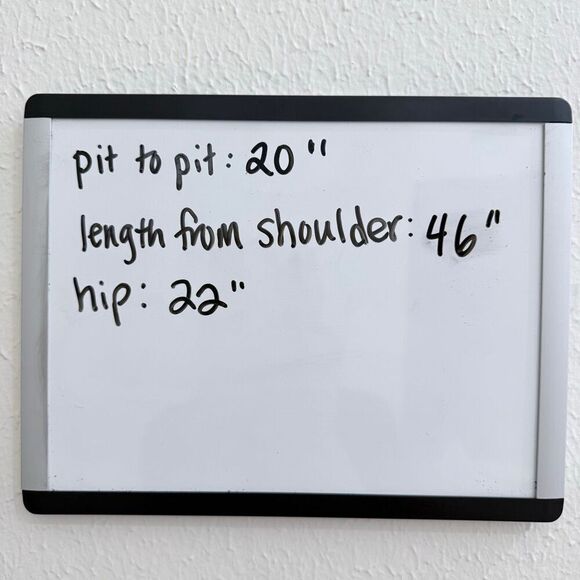 pit to pit: 20"
length from shoulder: 46"
hip: 22"